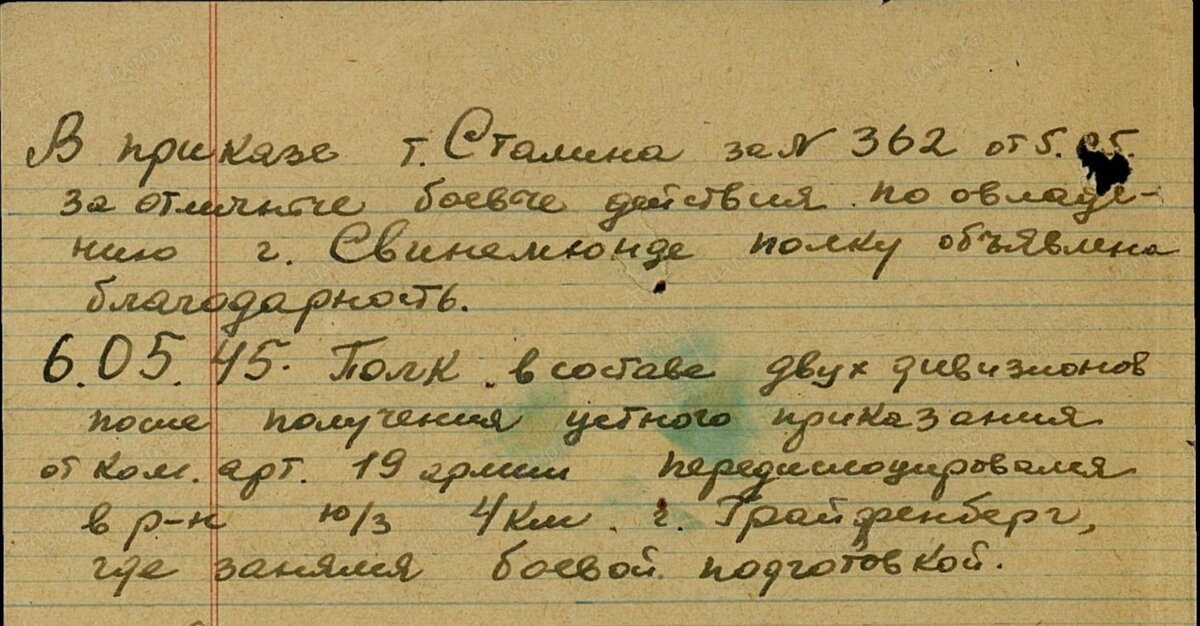 В приказе т. Сталина за N 362 от 5.05.
за отличные боевые действия по овладе-
нию г. Свинемюнде полку объявлена
благодарность.
6.05.45. Полк в составе двух дивизионов
после получения устного приказания
от ком. арт. 19 армии передислоцировался
в р-н ю/з 4 км. г. Грайфенберг,
где занялся боевой подготовкой.